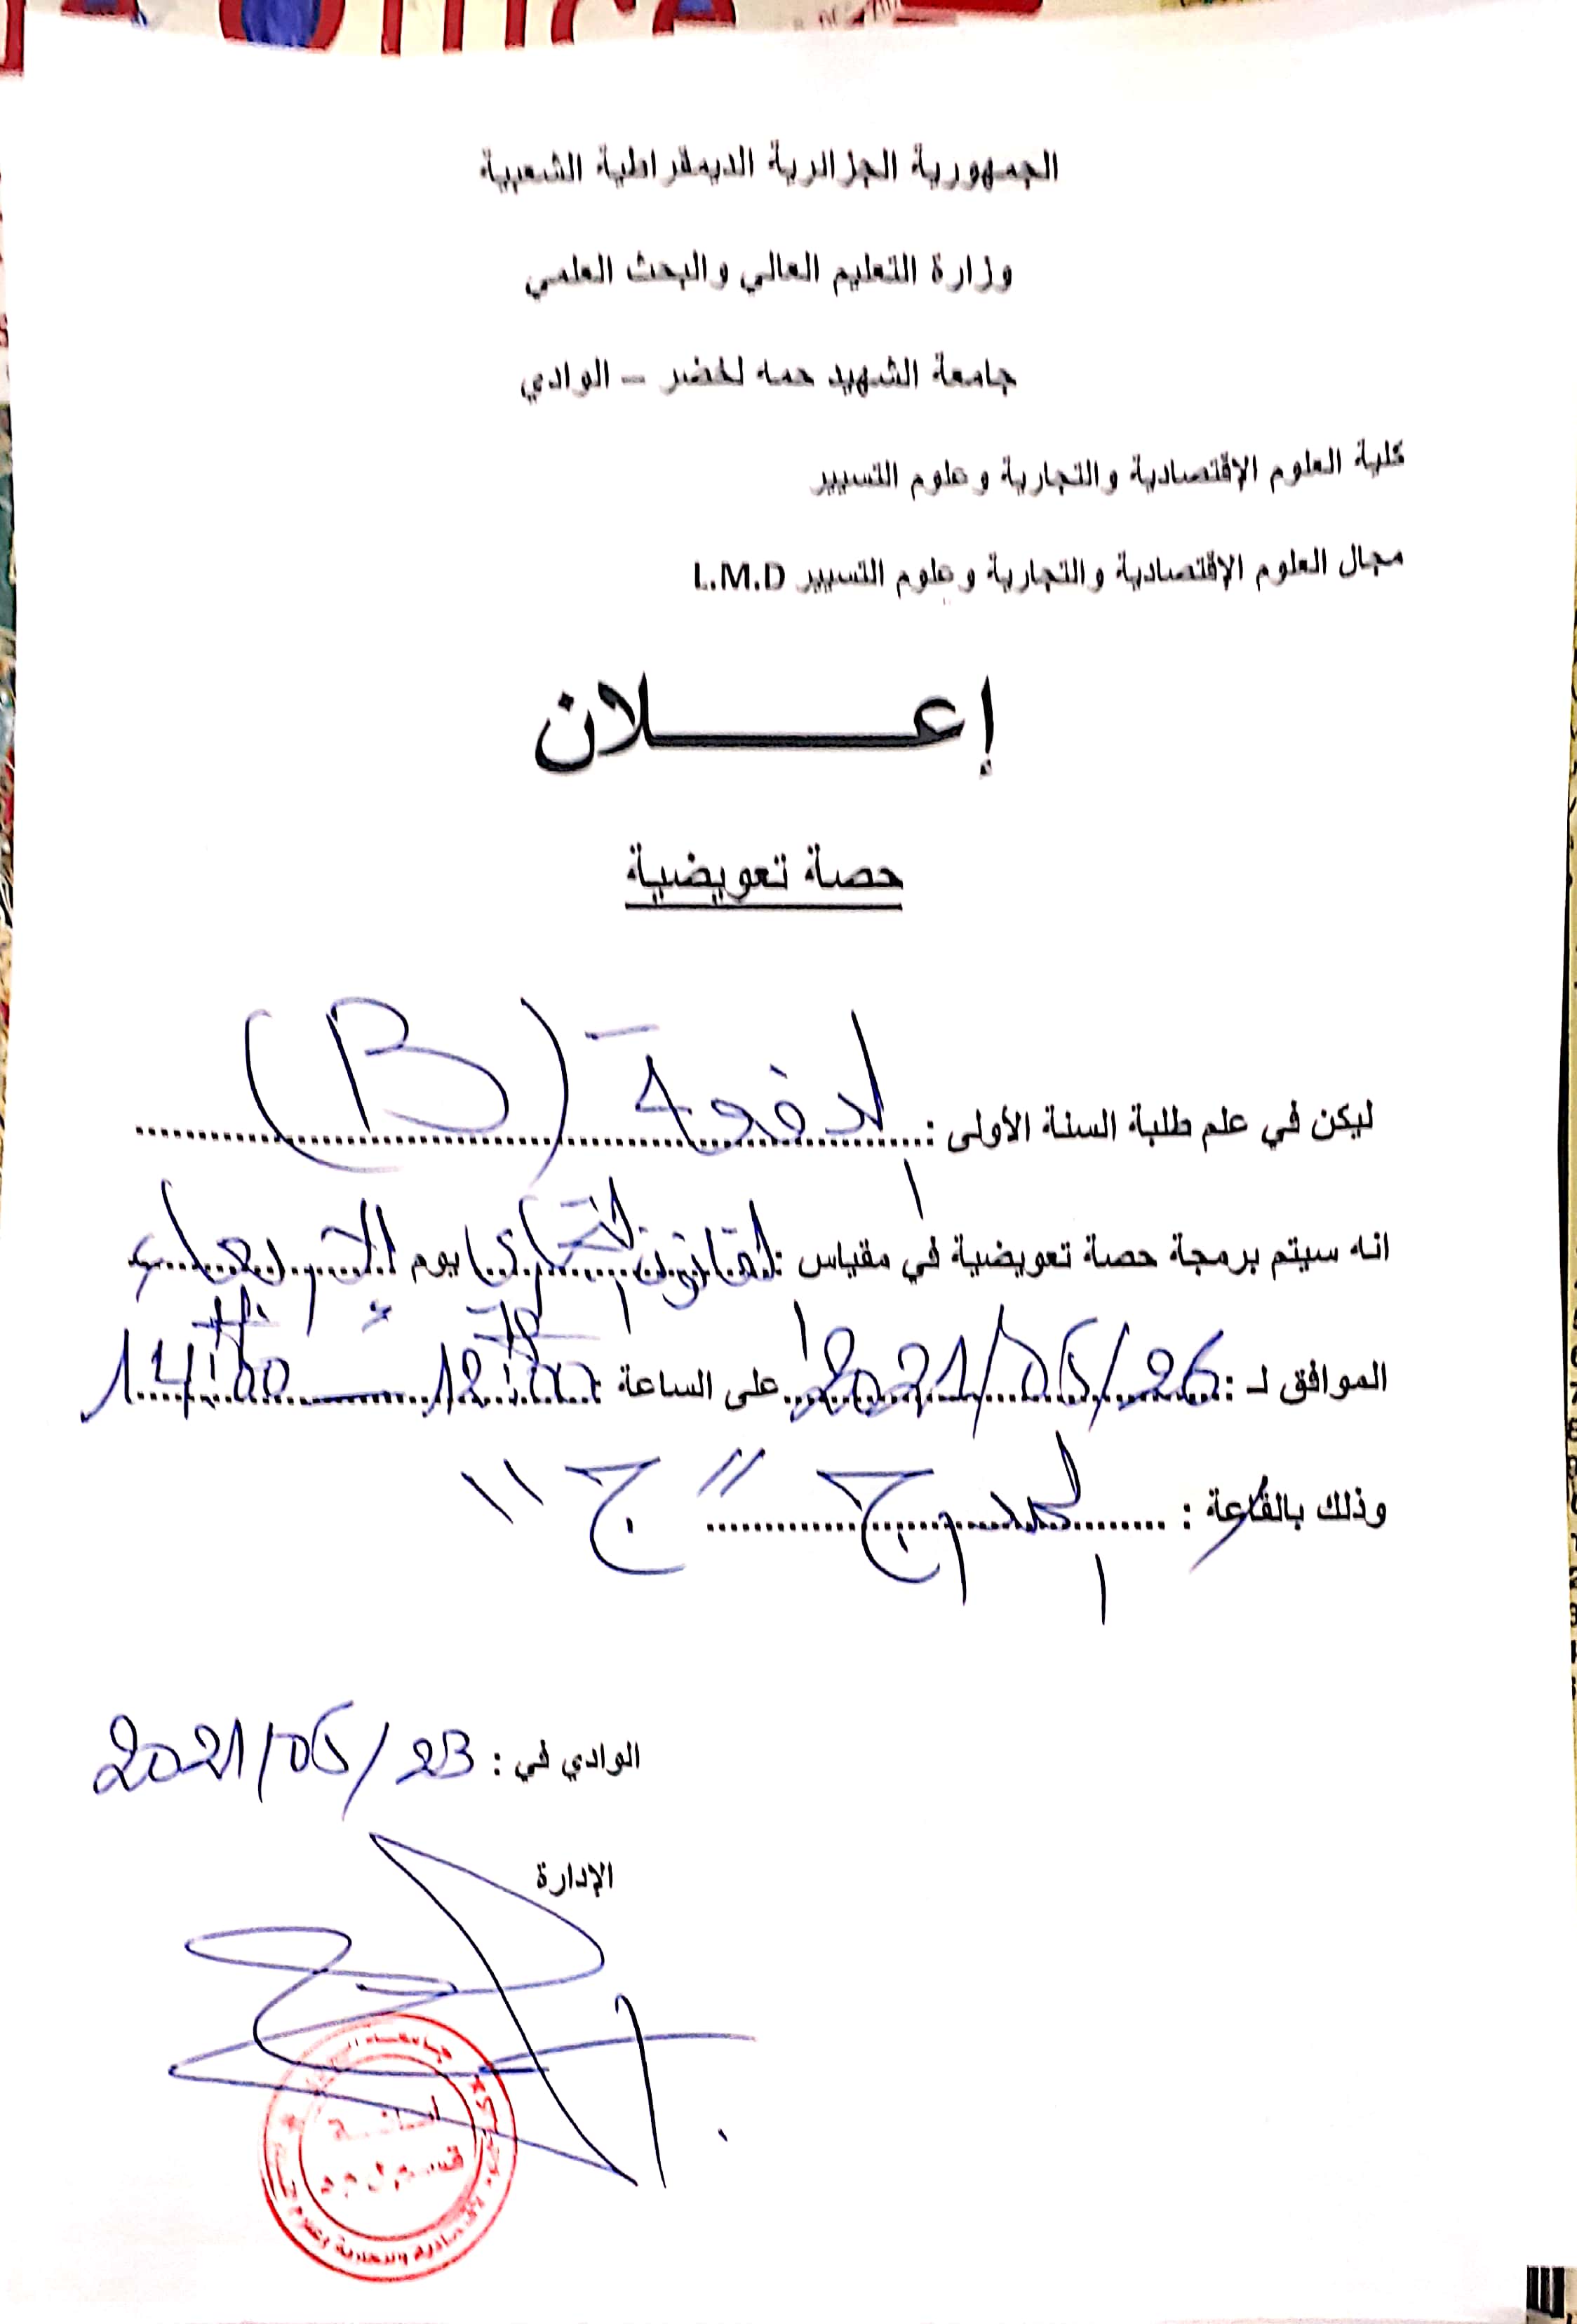 الجمهورية الجزائرية الديمقراطية الشعبية
وزارة التعليم العالي والبحث العلمي
جامعة الشهيد حمه لخضر – الوادي
كلية العلوم الإقتصادية والتجارية وعلوم التسيير
مجال العلوم الإقتصادية والتجارية وعلوم التسيير L.M.D
إعـــــــــلان
حصة تعويضية
ليكن في علم طلبة السنة الأولى : الدفعة (B)
انه سيتم برمجة حصة تعويضية في مقياس : القانون التجاري يوم الأربعاء
الموافق لـ : 2021/05/26 على الساعة : 12:00 — 14:00
وذلك بالقاعة : المدرج "ج"
الوادي في : 2021/05/23
الإدارة